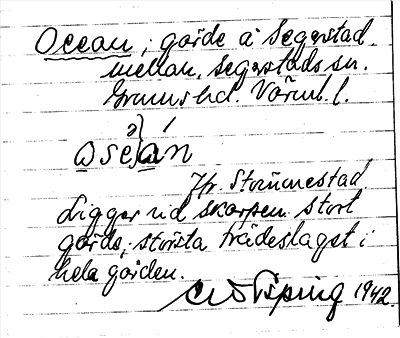 Ocean, gärde å Segerstad
mellan, Segerstads sn.
Grums hd. Värml. l.
osean
Jfr. Strömmestad
Ligger vid skarpen stort
gärde, största trädeslaget i
hela gården.
1942.